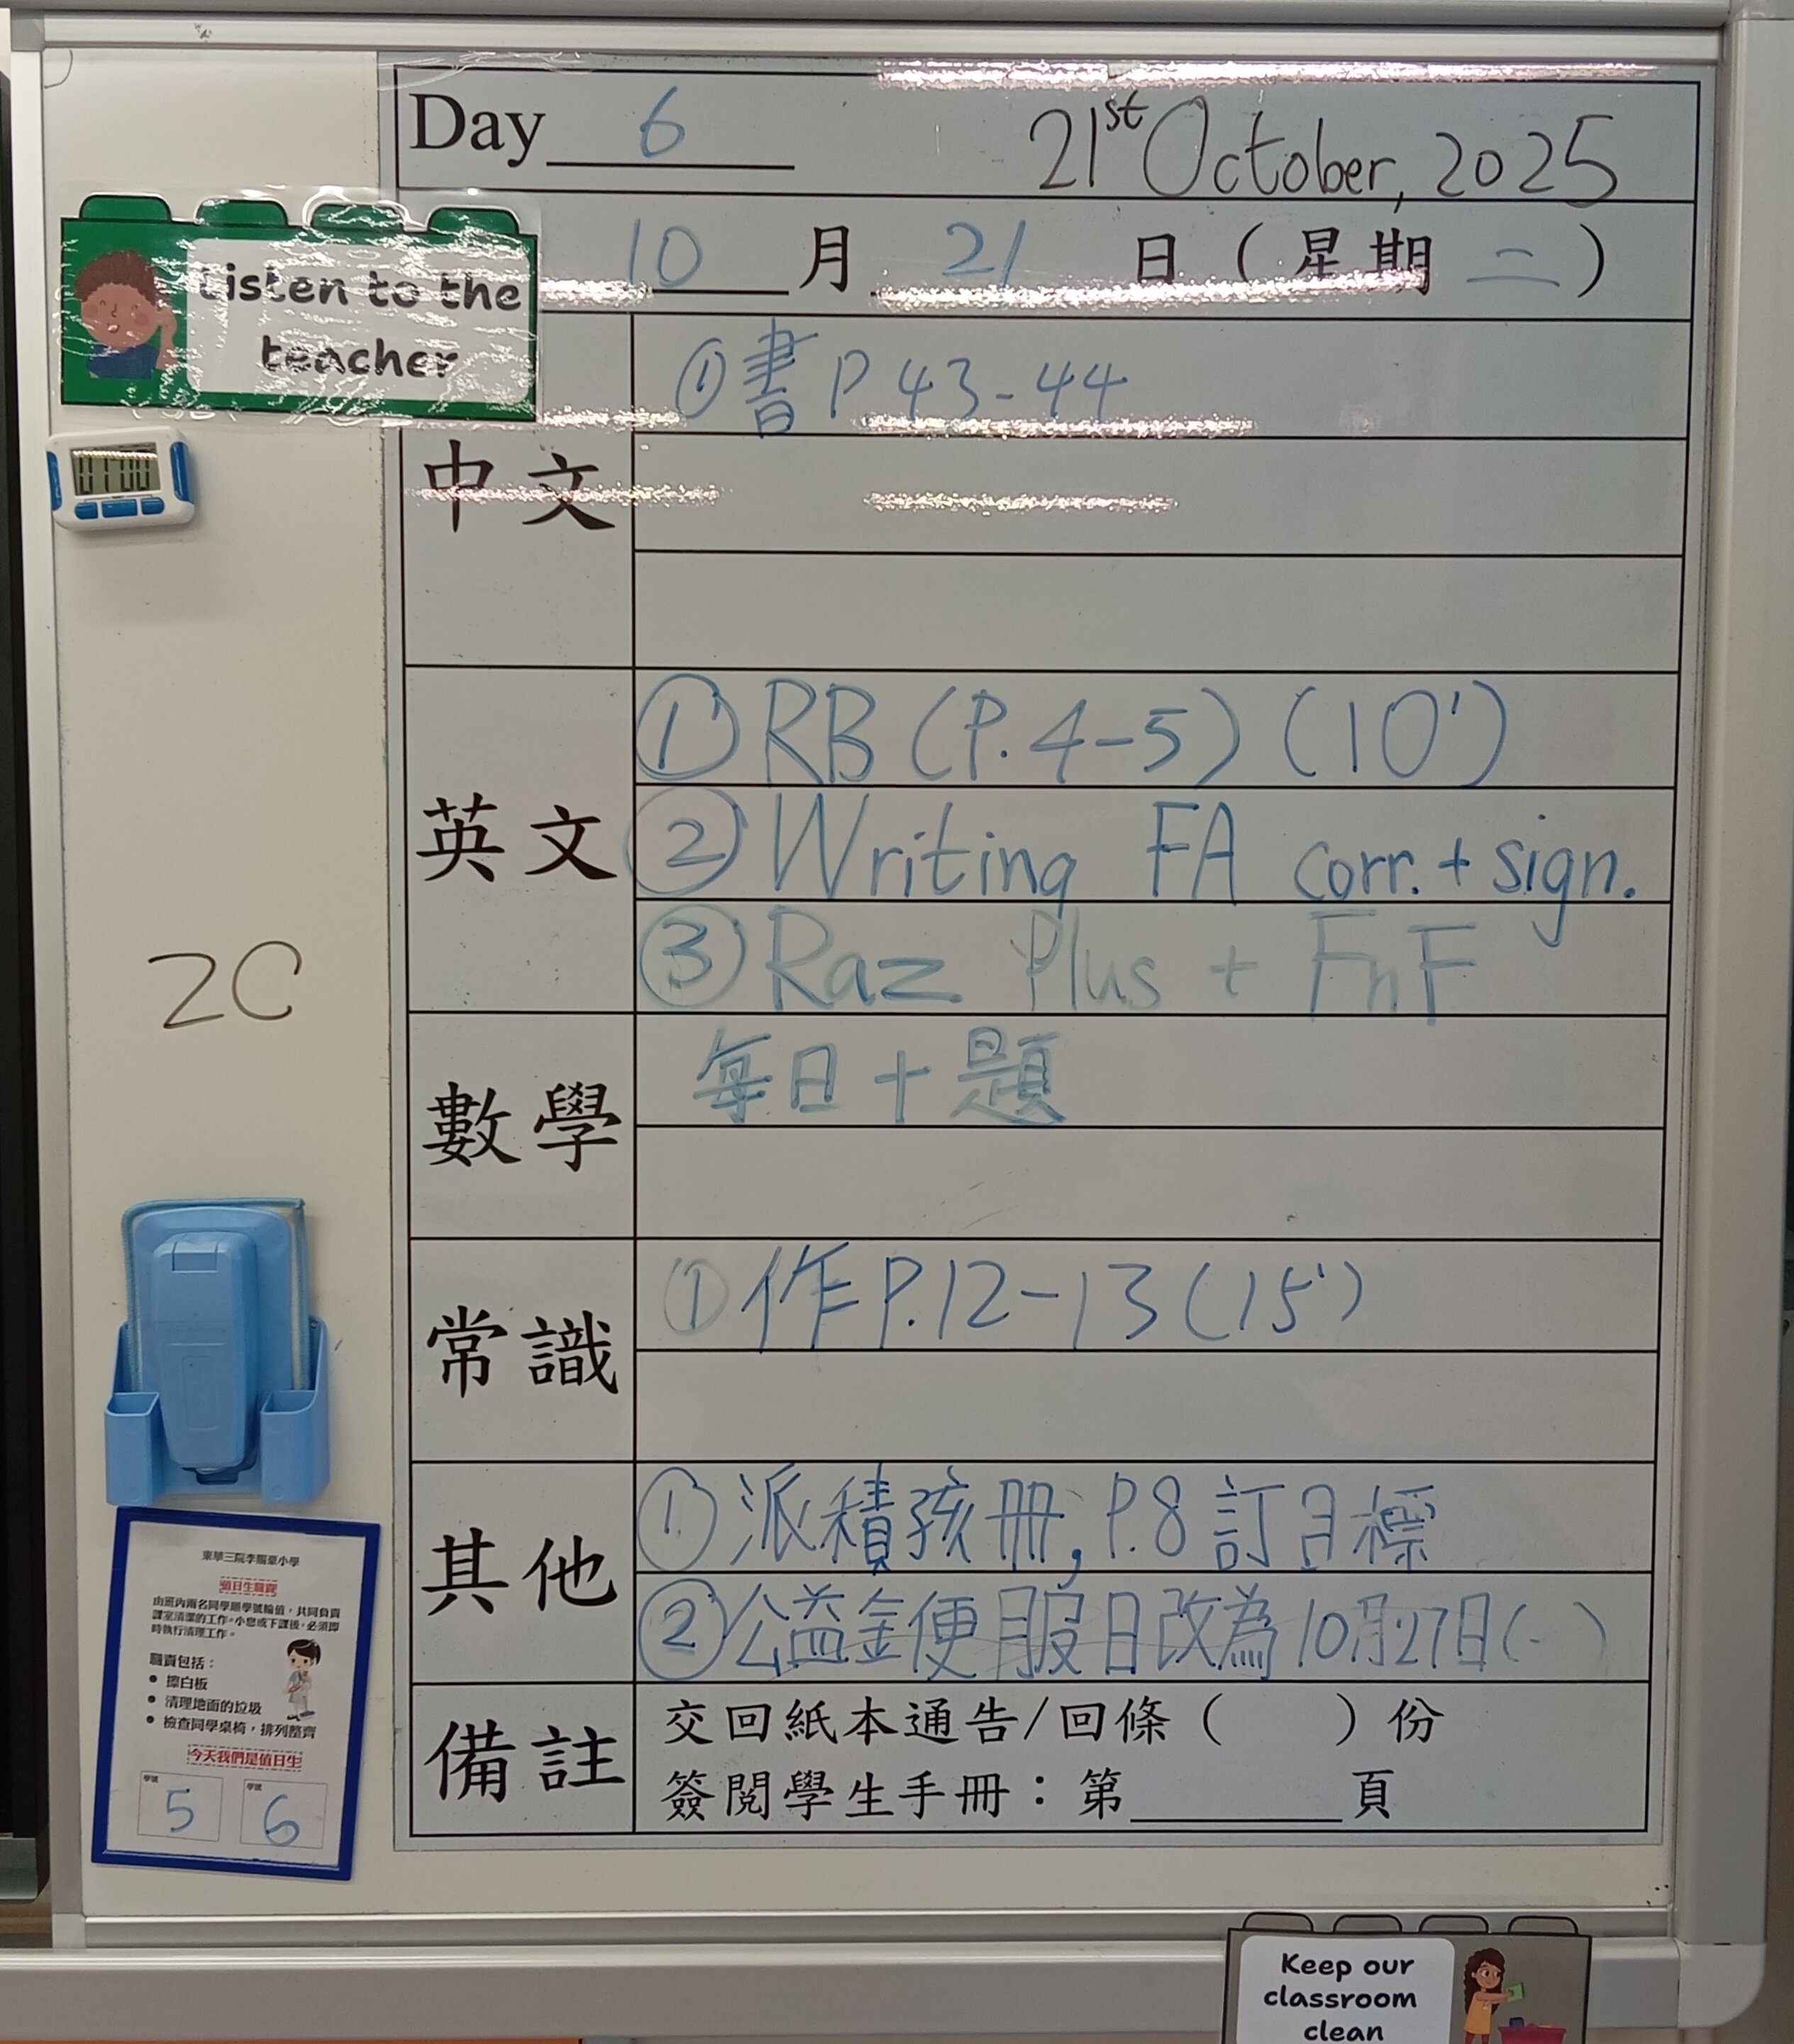 Day 6 21st October, 2025
10 月 21 日 ( 星期 二 )
Listen to the
teacher
中文
① 書 P 43-44
01 00
英文
① RB (P.4-5) (10')
② Writing FA corr. + sign.
③ Raz Plus + FnF
2C
數學
每日十題
常識
① 作 P.12-13 (15')
其他
① 派積孩冊, P.8 訂目標
② 公益金便服日改為10月27日(一)
備註
交回紙本通告/回條 ( ) 份
簽閱學生手冊：第______頁
東華三院李賜豪小學
值日生職責
由班內兩名同學順學號輪值，共同負責
課室清潔的工作。小息或下課後，必須即
時執行清理工作。
職責包括：
● 擦白板
● 清理地面的垃圾
● 檢查同學桌椅，排列整齊
今天我們是值日生
學號 學號
5 6
Keep our
classroom
clean